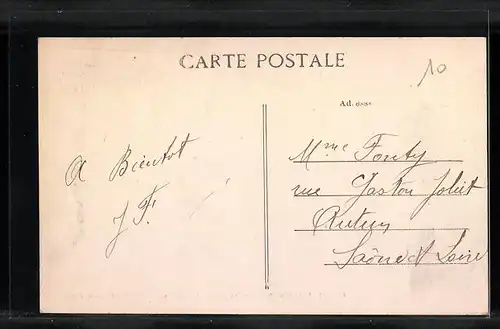 CARTE POSTALE
10
Adresse
A Bientot
J F.
Mme Fouty
rue Gaston Joliet
Autun
Saône et Loire